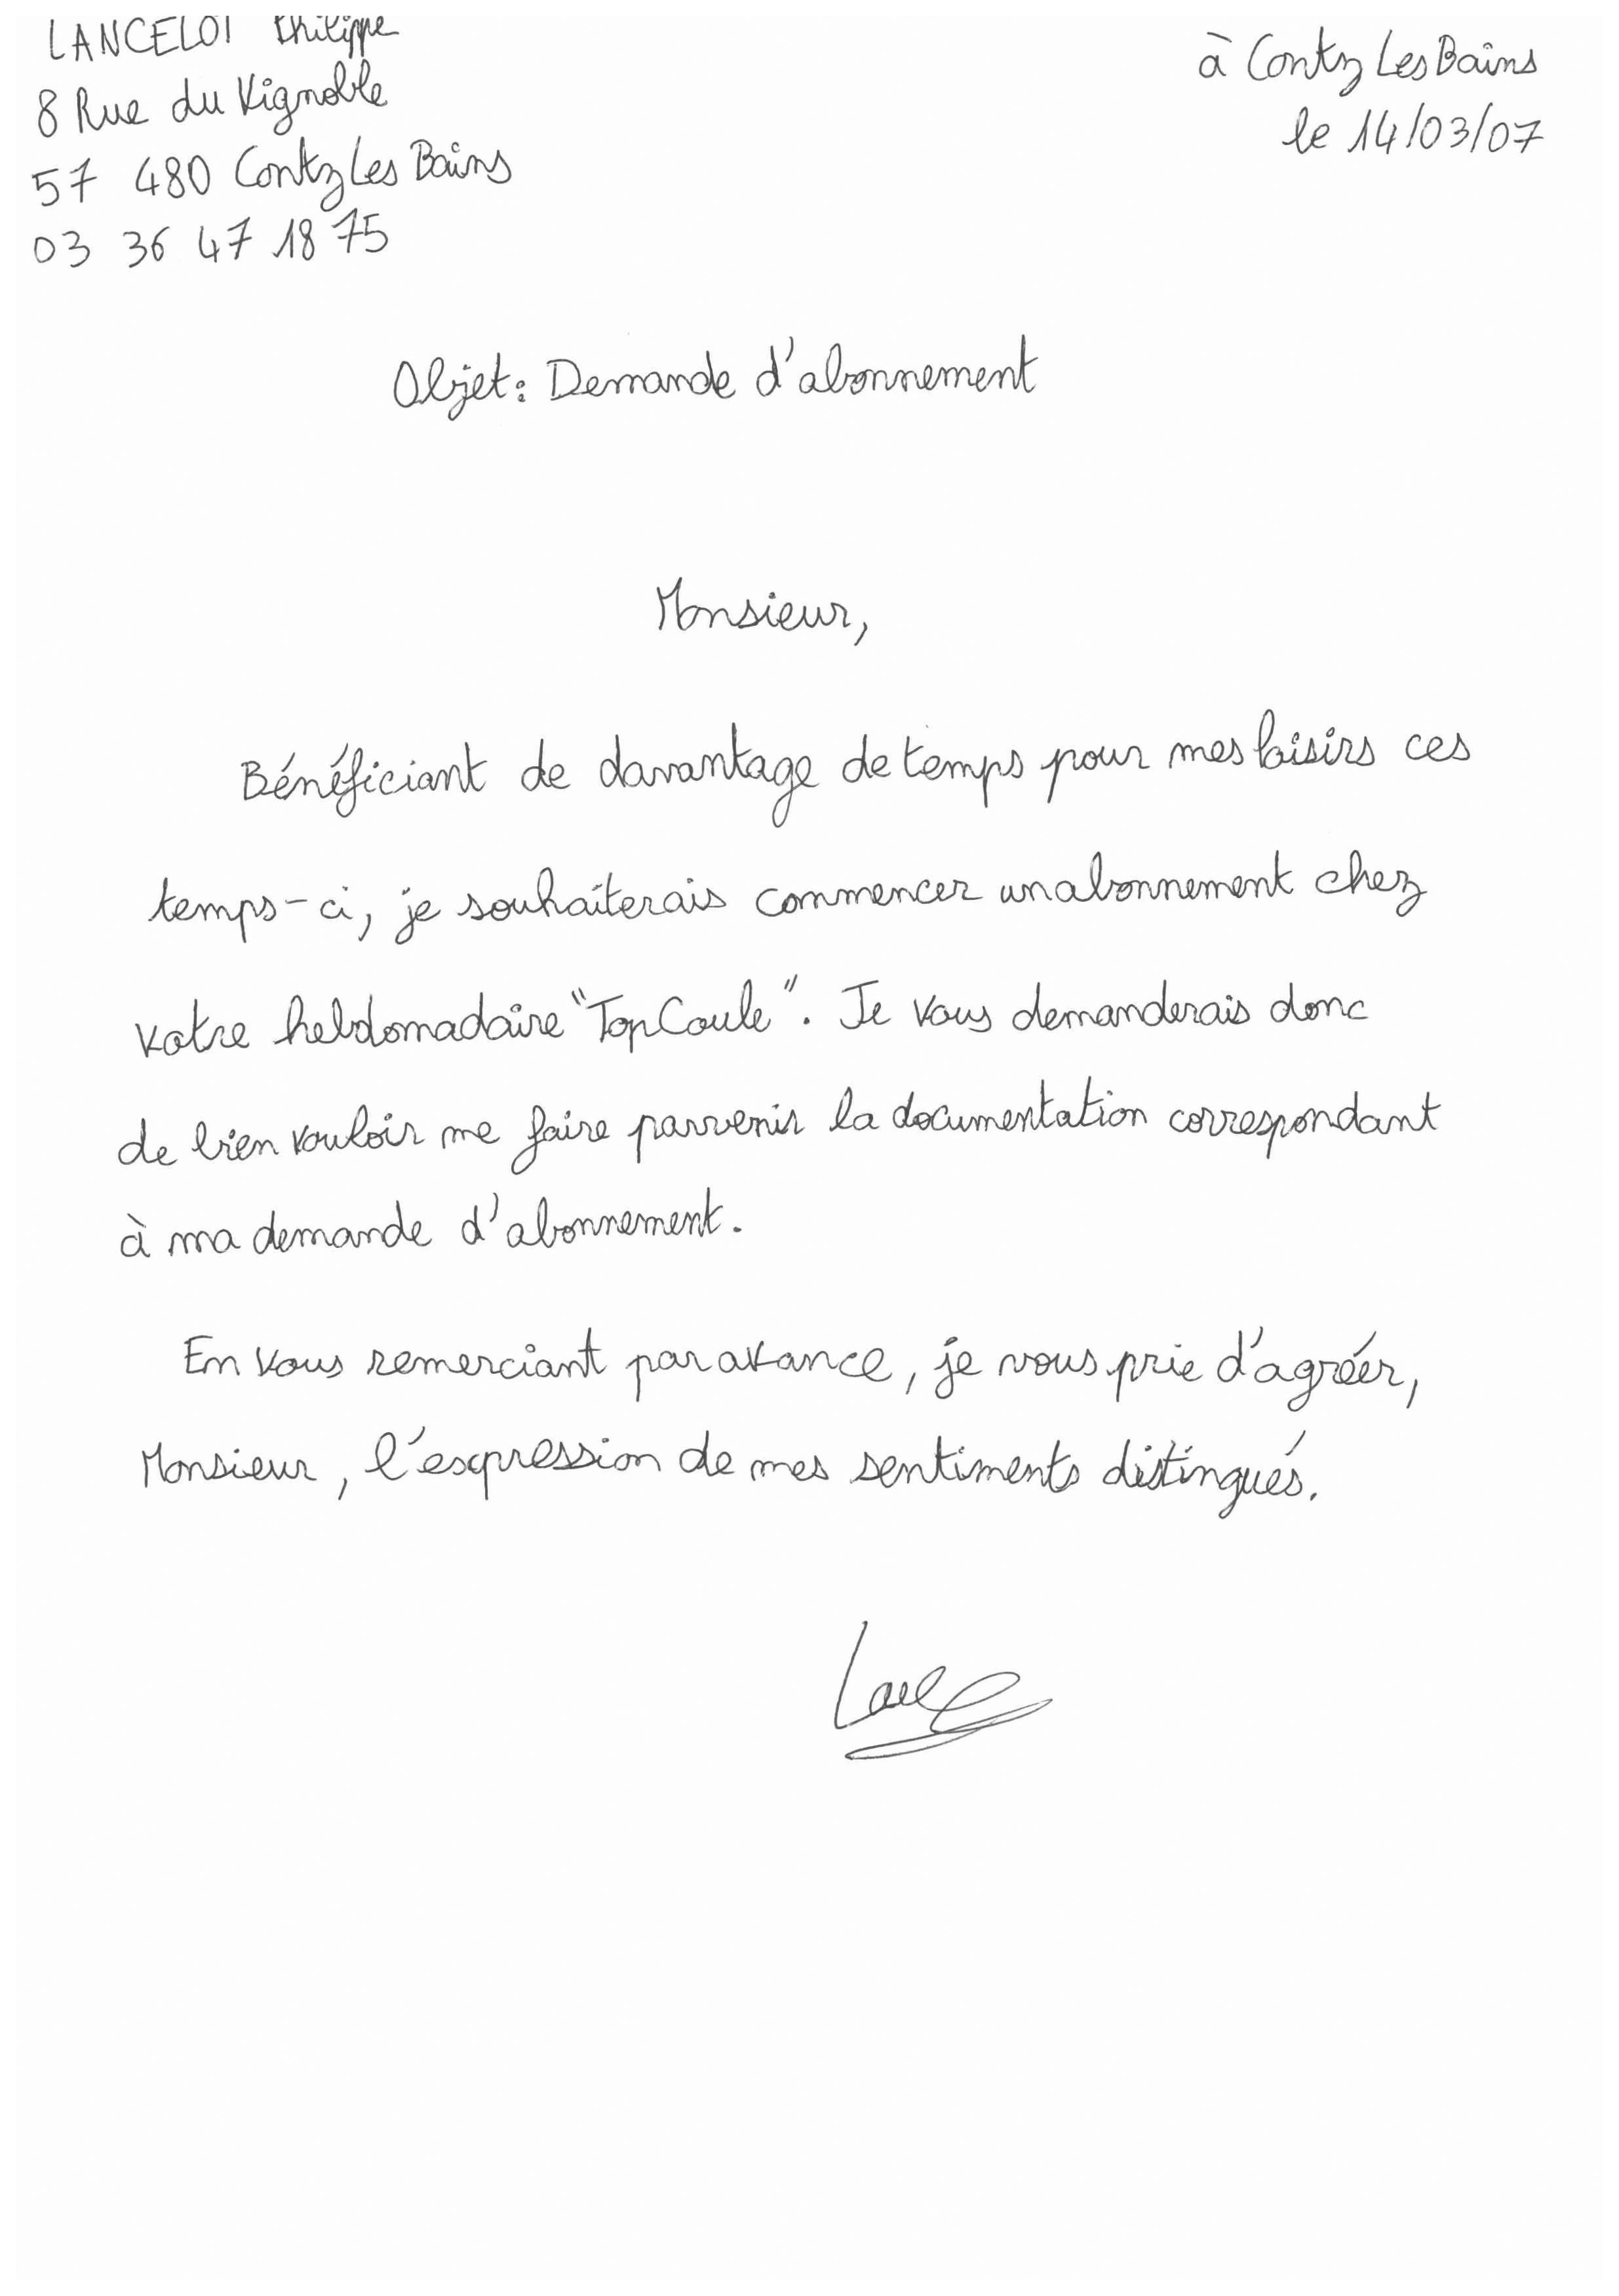 LANCELOT Philippe
8 Rue du Vignoble
57 480 Contz Les Bains
03 36 47 18 75
à Contz Les Bains
le 14/03/07
Objet: Demande d'abonnement
Monsieur,
Bénéficiant de davantage de temps pour mes loisirs ces
temps-ci, je souhaiterais commencer un abonnement chez
votre hebdomadaire "Top Coule". Je vous demanderais donc
de bien vouloir me faire parvenir la documentation correspondant
à ma demande d'abonnement.
En vous remerciant par avance, je vous prie d'agréer,
Monsieur, l'expression de mes sentiments distingués.